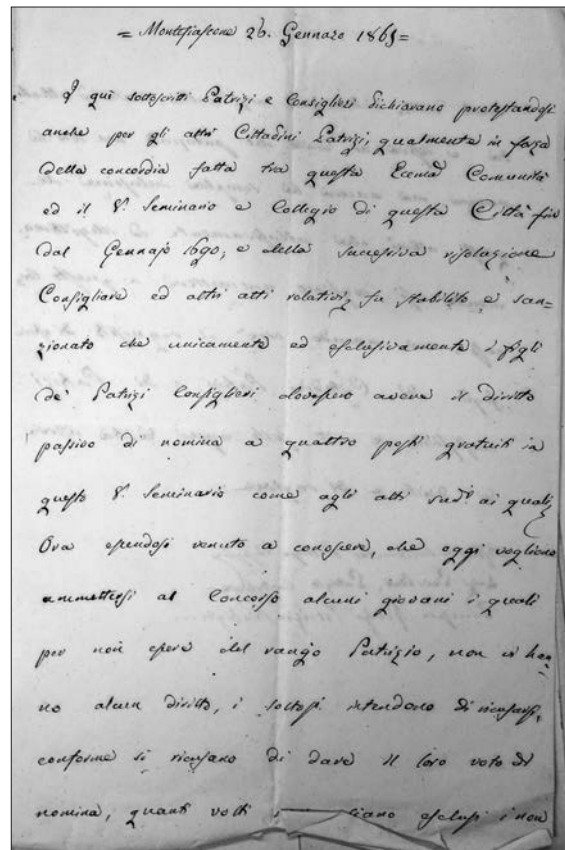 = Montefiascone 26. Gennaro 1865 =
I qui sottoscritti Patrizi e Consiglieri dichiarano protestandosi
anche per gli altri Cittadini Patrizi, qualmente in forza
della concordia fatta tra questa Eccma Comunità
ed il V. Seminario e Collegio di questa Città fin
dal Gennajo 1690, e della successiva risoluzione
Consigliare ed altri atti relativi, fu stabilito e san=
zionato che unicamente ed esclusivamente i figli
de' Patrizi Consiglieri dovessero avere il diritto
passivo di nomina a quattro posti gratuiti in
questo V. Seminario come agli atti sudi. ai quali
Ora essendosi venuto a conoscere, che oggi vogliono
ammettersi al Concorso alcuni giovani i quali
per non essere del rango Patrizio, non vi han=
no alcun diritto, i sottosi. intendono di ricusarsi,
conforme si ricusano di dare il loro voto di
nomina, quanti volti siano esclusi i non